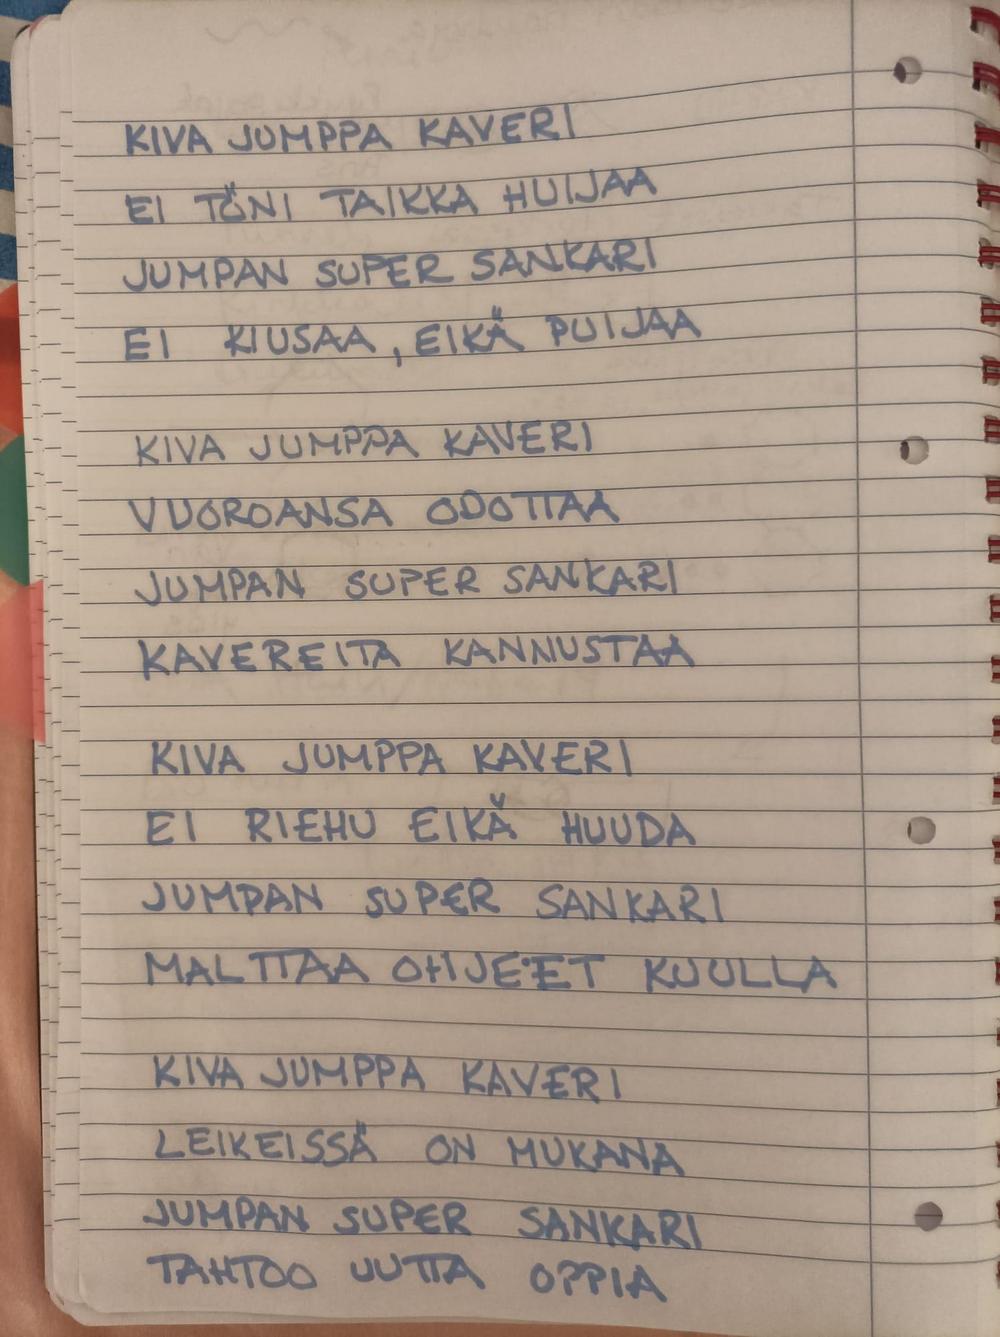 KIVA JUMPPA KAVERI
EI TÖNI TAIKKA HUIJAA
JUMPAN SUPER SANKARI
EI KIUSAA, EIKÄ PUIJAA
KIVA JUMPPA KAVERI
VUOROANSA ODOTTAA
JUMPAN SUPER SANKARI
KAVEREITA KANNUSTAA
KIVA JUMPPA KAVERI
EI RIEHU EIKÄ HUUDA
JUMPAN SUPER SANKARI
MALTTAA OHJEET KUULLA
KIVA JUMPPA KAVERI
LEIKEISSÄ ON MUKANA
JUMPAN SUPER SANKARI
TAHTOO UUTTA OPPIA